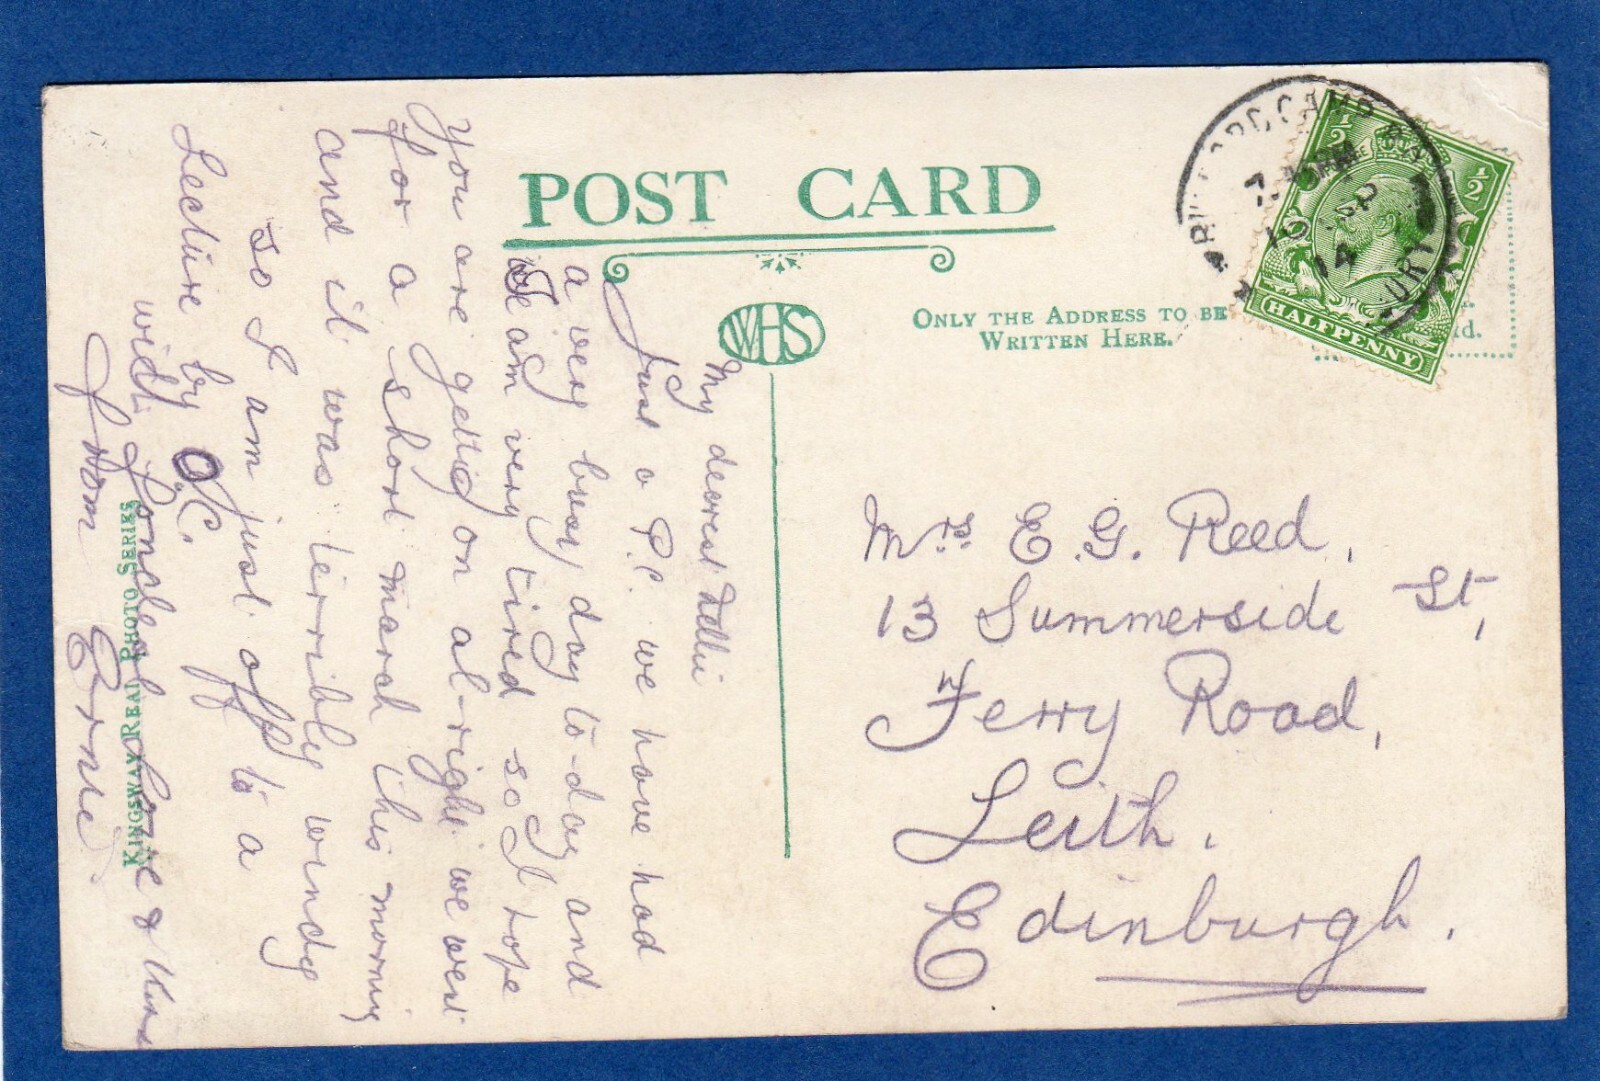 POST CARD
WHS
ONLY THE ADDRESS TO BE
WRITTEN HERE.
½ ½
HALFPENNY
CAMP
10 SP
14
d.
Mrs E. G. Reed,
13 Summerside St,
Ferry Road,
Leith.
Edinburgh.
My dearest Nellie
Just a P.C we have had
a very busy day to-day and
I am very tired so I hope
you are gettig on al-right we went
for a short march this morning
and it was terribly windy
so I am just off to a
Lecture by O.C.
with fondest love & Kiss
from Ernie
KINGSWAY REAL PHOTO SERIES